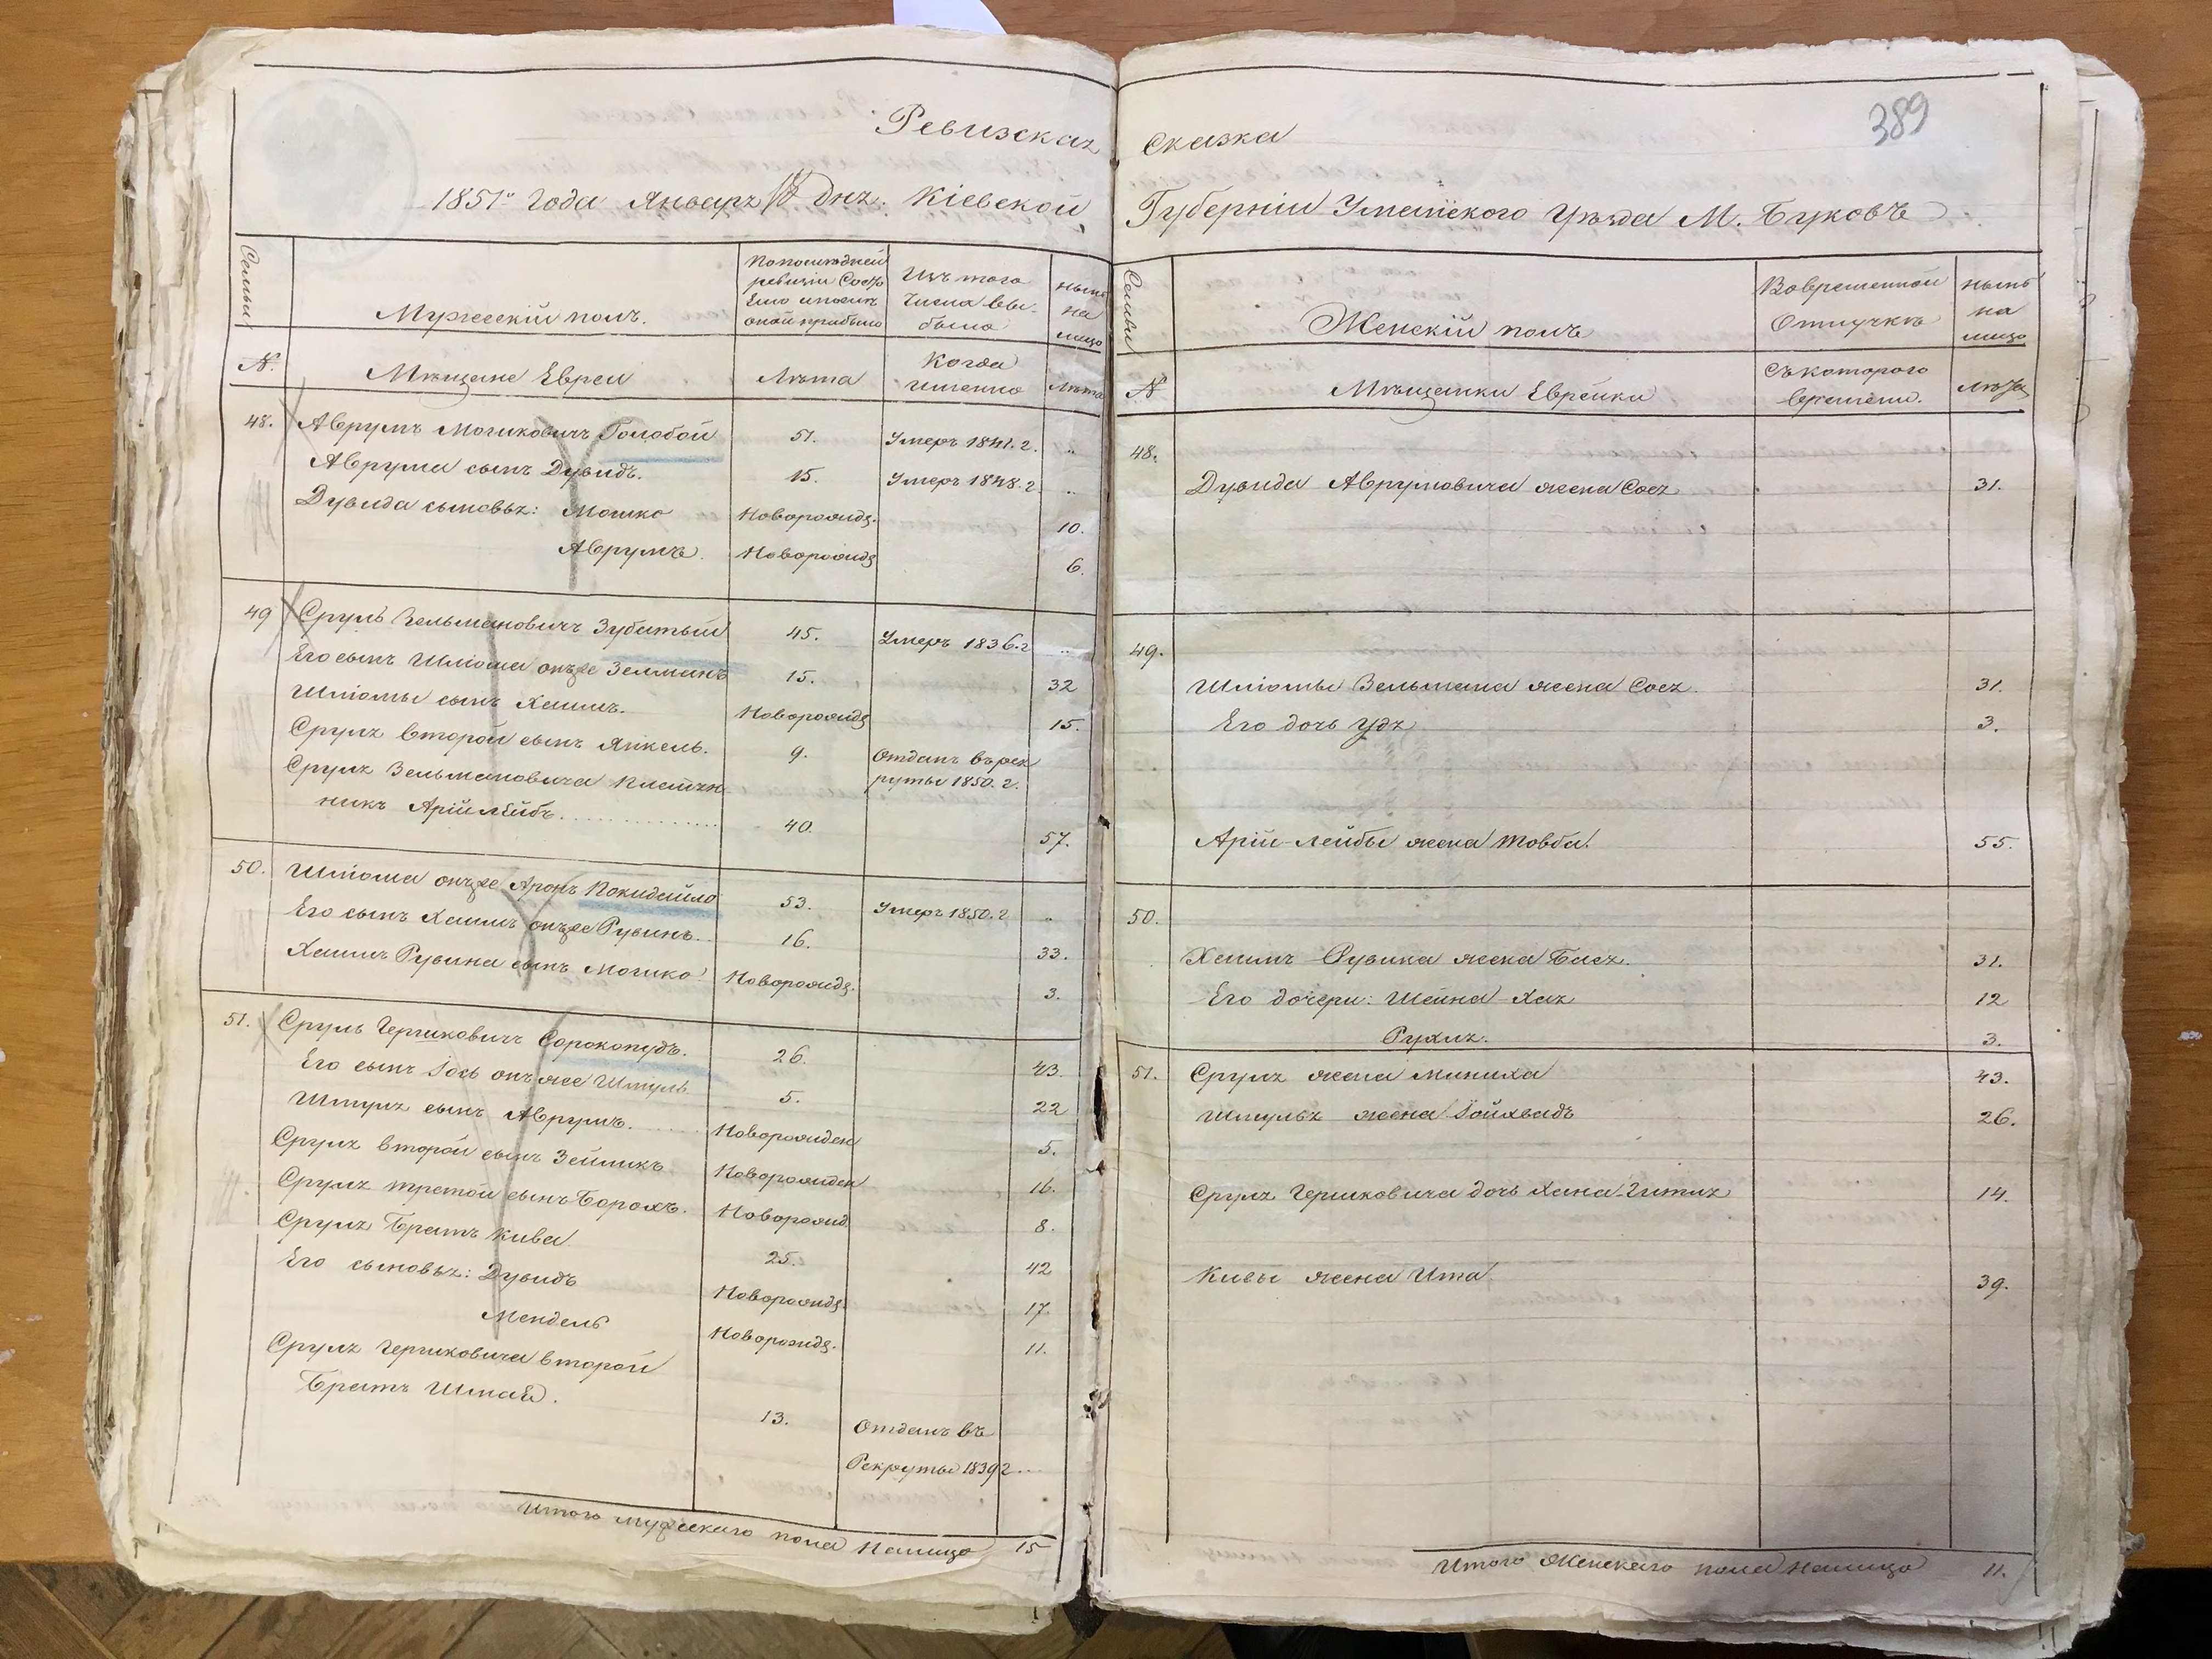 Ревизская Сказка
389
1851го Года Января 18 дня. Кіевской Губерніи Уманского Уѣзда М. Буковъ
Семьи
Мужескій полъ.
По последней ревизіи Состо
яло и после
оной прибыло
Изъ того
Числа вы-
было
нынѣ
на
лицо
№.
Мѣщане Евреи
Лѣта
Когда
именно
Лѣта
48. Аврумъ Мошковичъ Голобой 51. Умеръ 1841. г. „
Аврума сынъ Дувидъ. 15. Умеръ 1848. г. „
Дувида сыновья: Мошко Новорожд. 10.
Аврумъ. Новорожд 6.
49 Сруль Зельмановичъ Зубатый 45. Умеръ 1836. г „
Его сынъ Шліома онъже Зелманъ 15. 32
Шліомы сынъ Хаимъ. Новорожд 15.
Сруля второй сынъ Янкель. 9. Отданъ въ рек
руты 1850. г.
Сруля Зельмановича племян
никъ Арій Лейбъ. 40. 57.
50. Шліома онъже Аронъ Покидайло 53. Умеръ 1850. г „
Его сынъ Хаимъ онъже Рувинъ. 16. 33.
Хаимъ Рувина сынъ Мошко Новорожд. 3.
51. Сруль Гершковичъ Сорокопудъ. 26. 43.
Его сынъ Іось онъ же Шмуль. 5. 22
Шмуля сынъ Аврумъ. Новорожден 5.
Сруля второй сынъ Зейликъ Новорожден 16.
Сруля третой сынъ Борохъ. Новорожд. 8.
Сруля Братъ Кива. 25. 42
Его сыновья: Дувидъ Новорожд. 17.
Мендель Новорожд. 11.
Сруля Гершковича второй
Братъ Шмая. 13. Отданъ въ
Рекруты 1839 г. ...
Итого мужескаго пола налицо 15
Семьи
Женскій полъ
Во временной
Отлучкѣ
нынѣ
на
лицо
№
Мѣщанки Еврейки
Съ котораго
времени.
Лѣта
48.
Дувида Аврумовича жена Сося 31.
49.
Шліомы Зельмана жена Сося. 31.
Его дочь Удя 3.
Арій-Лейбы жена Товба. 55.
50.
Хаимъ Рувина жена Бася. 31.
Его дочери: Шейна-Хая 12
Рухля. 3.
51. Сруля жена Миниха 43.
Шмуля жена Іойхвадъ 26.
Сруля Гершковича дочь Хана-Гитля 14.
Кивы жена Ита. 39.
Итого Женскаго пола налицо 11.